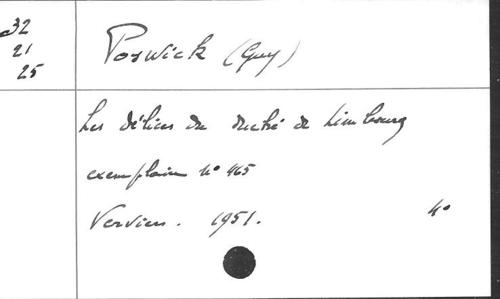 32
21
25
Poswick (Guy)
Les délices du duché de Limbourg
exemplaire N° 465
Verviers. 1951. 4°